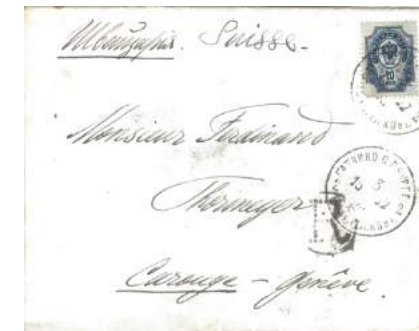 Швейцарія. Suisse.
10
Monsieur Ferdinand
Thormeyer
Carouge – Genève.